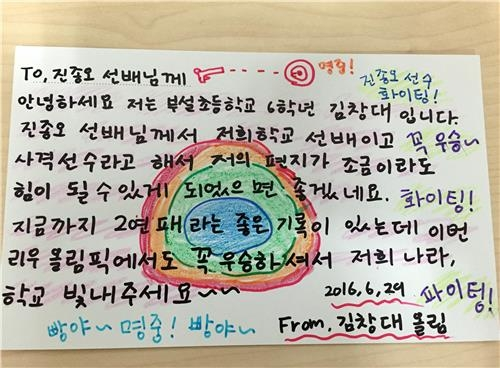 To, 진종오 선배님께
명중!
진종오 선수
화이팅!
안녕하세요 저는 부설초등학교 6학년 김창대 입니다.
진종오 선배님께서 저희학교 선배이고
꼭 우승~
사격선수라고 해서 저의 편지가 조금이라도
힘이 될 수 있게 되었으면 좋겠네요.
화이팅!
지금까지 2연패라는 좋은 기록이 있는데 이번
리우 올림픽에서도 꼭 우승하셔서 저희 나라,
학교 빛내주세요~~
2016.6.29
파이팅!
빵야~ 명중! 빵야~
From. 김창대 올림